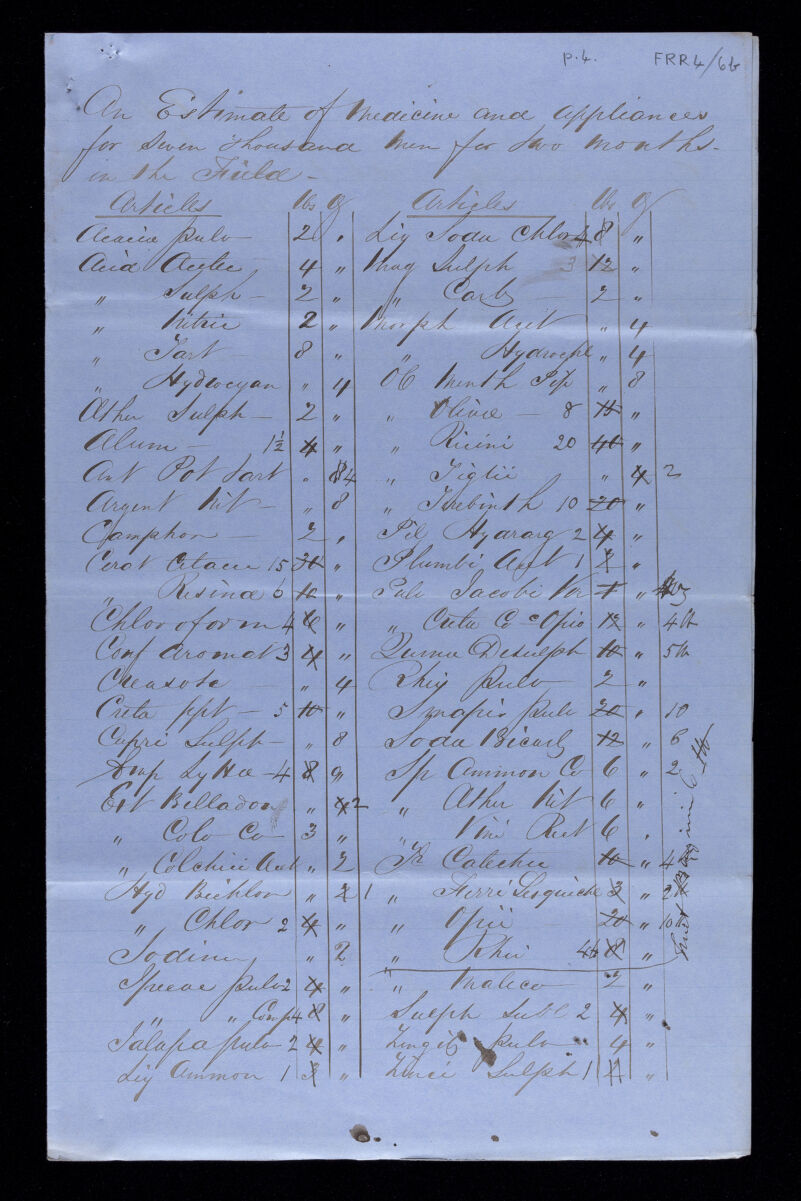 P.4. FRR4/6b
An Estimate of Medicine and Appliances
for Seven Thousand Men for two Months
in the Field
Articles lbs ℥
Acaciæ pulv 2 "
Acid Acetic 4 "
" Sulph 2 "
" Nitric 2 "
" Tart 8 "
" Hydrocyan " 4
Æther Sulph 2 "
Alum 1½ 4 "
Ant Pot Tart " 8 4
Argent Nit " 8
Camphor 2 "
Cerat Cetacei 15 30 "
" Resinæ 6 10 "
Chloroform 4 6 "
Conf Aromat 3 4 "
Creasote " 4
Creta ppt 5 10 "
Cupri Sulph " 8
Emp Lyttæ 4 8 "
Ext Belladon " 4 2
" Colo Co 3 "
" Colchici Acet " 2
Hyd Bichlor " 2 1
" Chlor 2 4 "
Iodine " 2
Ipecac pulv 2 4 "
" " Comp 4 8 "
Jalapa pulv 2 4 "
Liq Ammon 1 3 "
Articles lbs ℥
Liq Soda Chlor 4 8 "
Mag Sulph 3 12 "
" Carb 2 "
Morph Acet " 4
" Hydrochl " 4
Ol Menth Pip " 8
" Olivæ 8 "
" Ricini 20 40 "
" Tiglii " 4 2
" Terebinth 10 20 "
Pil Hydrarg 2 4 "
Plumbi Acet 1 2 "
Pulv Jacobi Ver 1 "
" Creta Co c Opio 12 " 4 lb
Quinæ Disulph 10 " 5 lb
Rhei pulv 2 "
Sinapis pulv 20 " 10
Soda Bicarb 12 " 6
Sp Ammon Co 6 " 2
" Æther Nit 6 "
" Vini Rect 6 "
Tr Catechu 10 " 4
" Ferri Sesquichl 3 " 2
" Opii 20 " 10 lb
" Rhei 4 lb 8 "
" Matico 2 "
Sulph Subl 2 4 "
Zingib pulv 4 "
Zinci Sulph 1 2 "